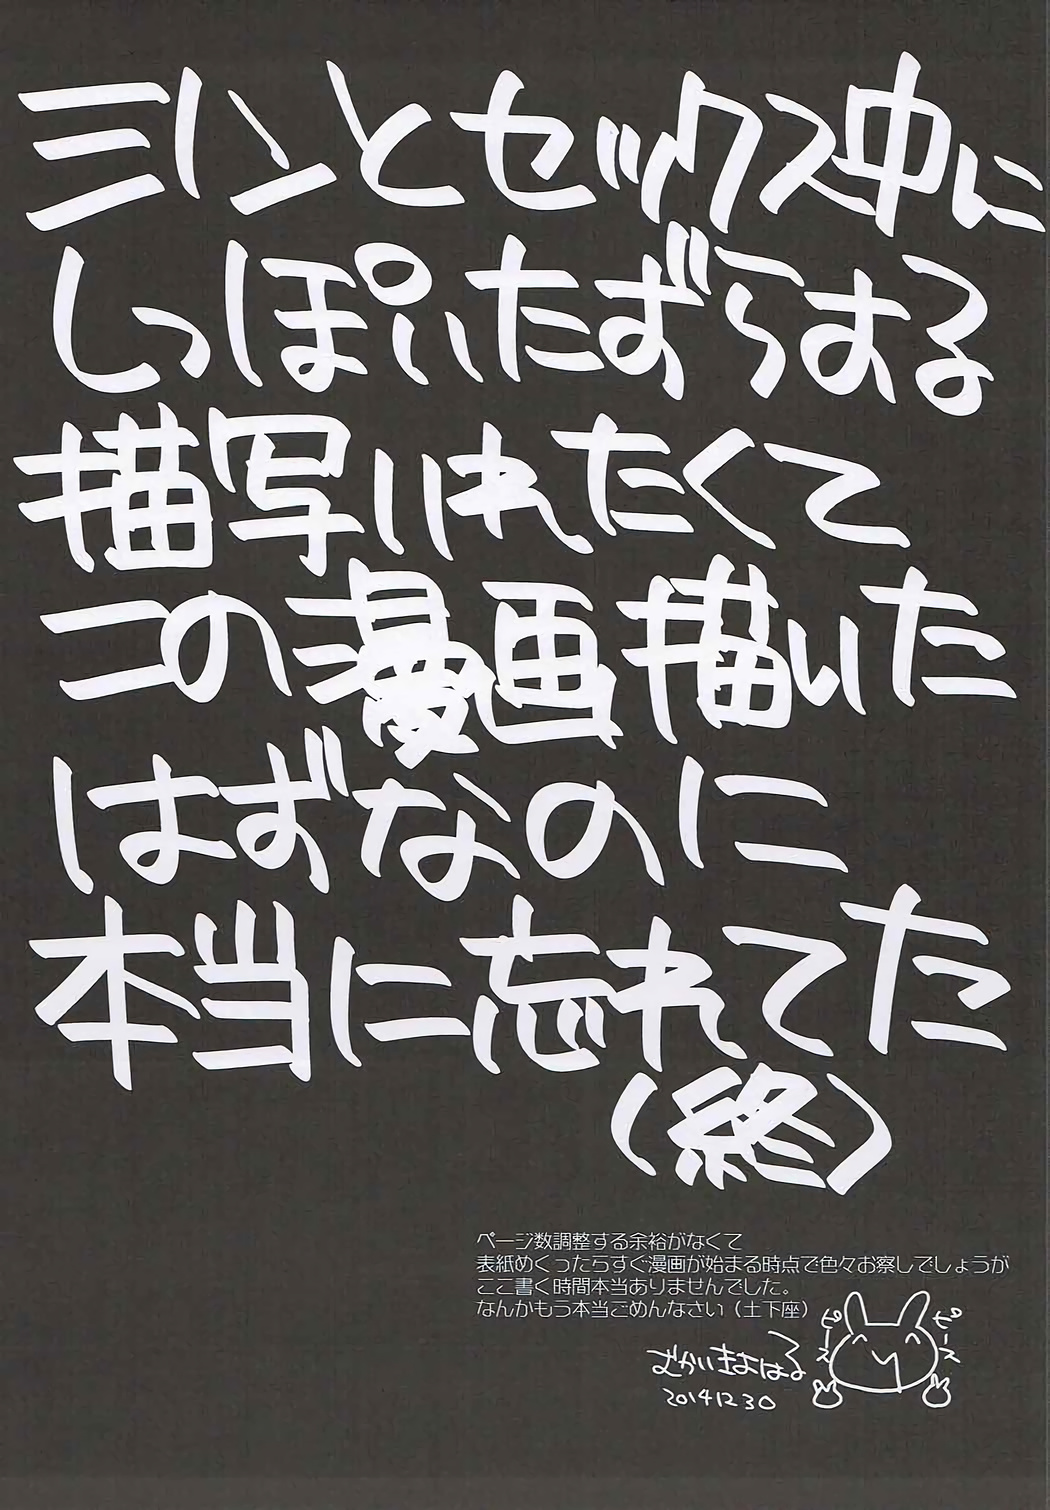 ミリンとセックス中に
しっぽいたずらする
描写いれたくて
この漫画描いた
はずなのに
本当に忘れてた
(終)
ページ数調整する余裕がなくて
表紙めくったらすぐ漫画が始まる時点で色々お察しでしょうが
ここ書く時間本当ありませんでした。
なんかもう本当ごめんなさい（土下座）
ピース
ピース
むかいきよはる
20141230